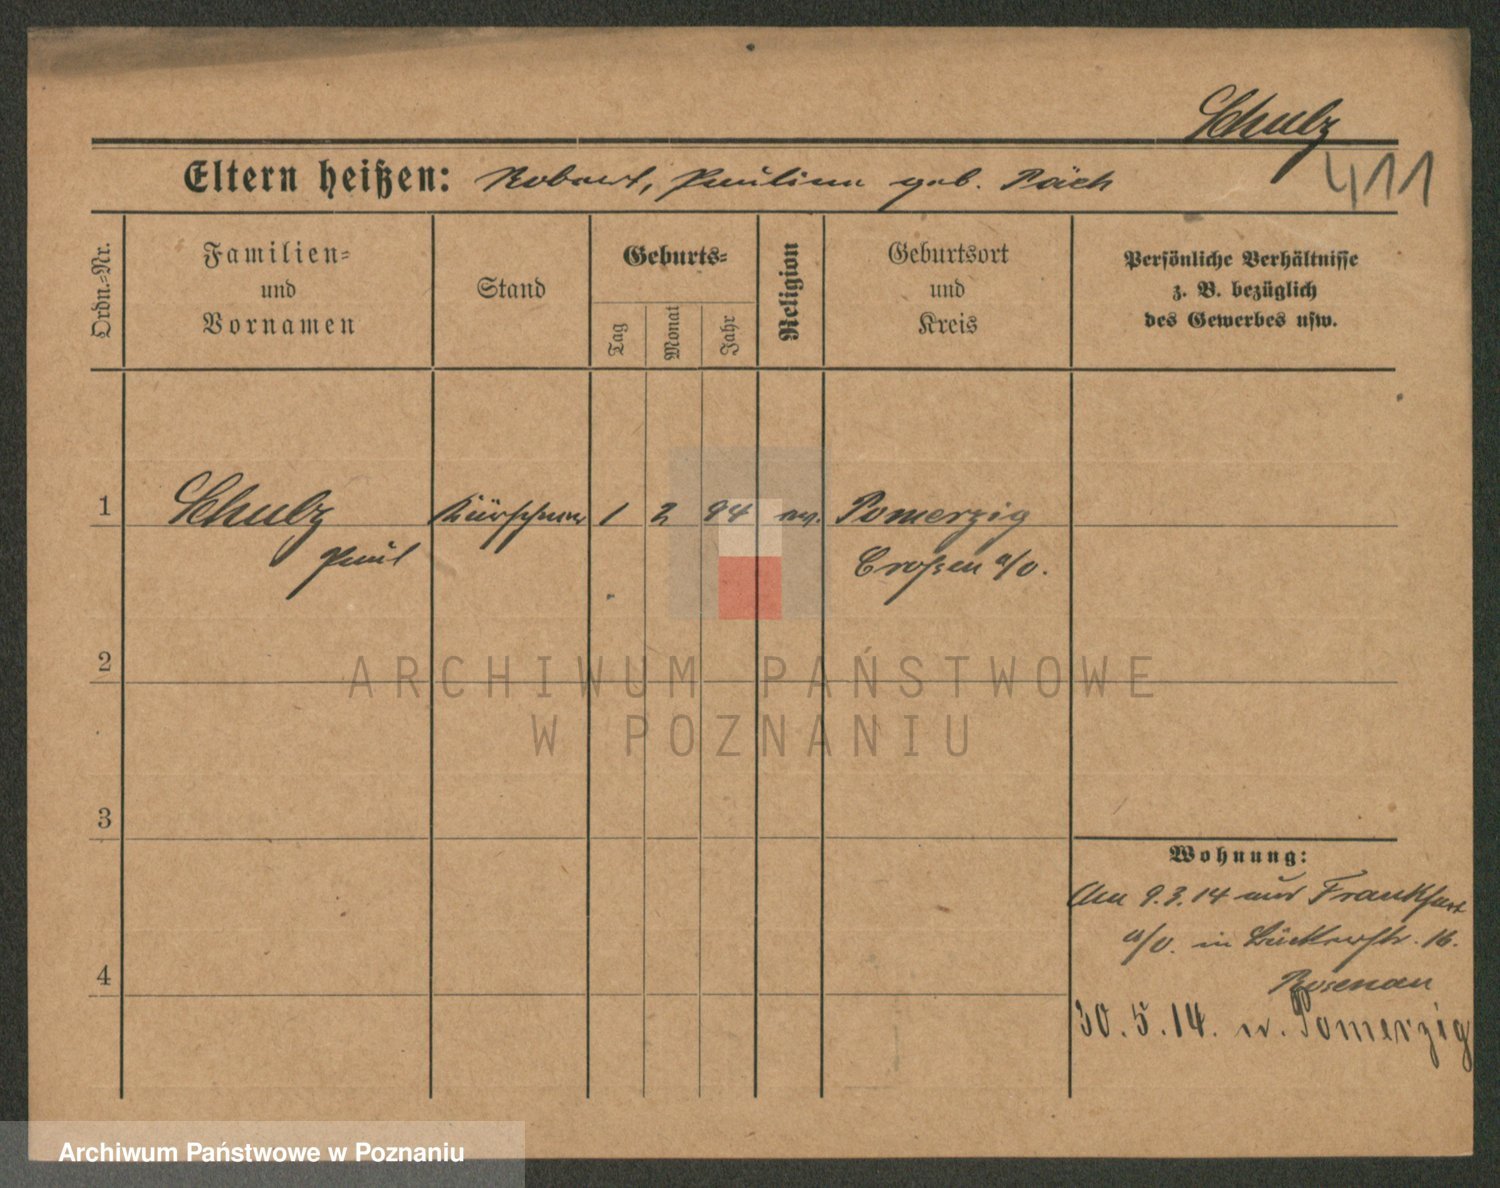 Schulz
411
Eltern heißen: Robert, Pauline geb. Päch
Ordn.=Nr.
Familien=
und
Vornamen
Stand
Geburts=
Tag
Monat
Jahr
Religion
Geburtsort
und
Kreis
Persönliche Verhältnisse
z. B. bezüglich
des Gewerbes usw.
1
Schulz
Paul
Kürschner
1
2
94
ev.
Pomerzig
Crossen a/O.
2
ARCHIWUM PAŃSTWOWE
W POZNANIU
3
4
Wohnung:
Am 9.3.14 aus Frankfurt
a/O. in 16.
Rosenau
30.5.14. n. Pomerzig
Archiwum Państwowe w Poznaniu